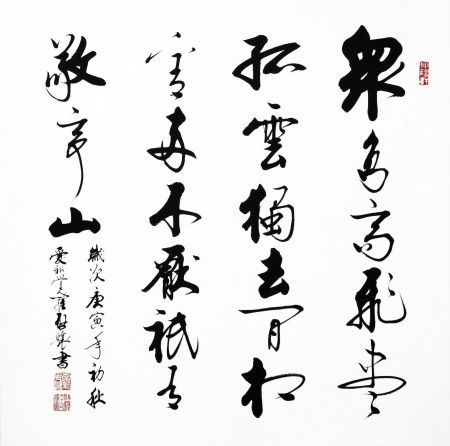 眾鳥高飛盡
孤雲獨去閒相
看兩不厭祇有
敬亭山
歲次庚寅年初秋
愛新覺羅書